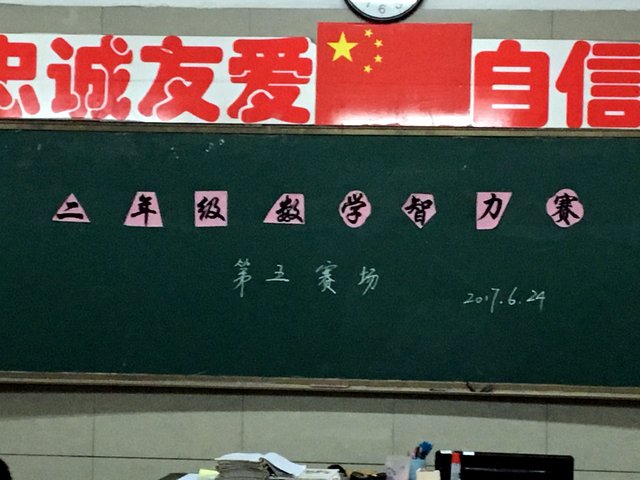 忠诚友爱 自信
二年级数学智力赛
第五赛场
2017.6.24